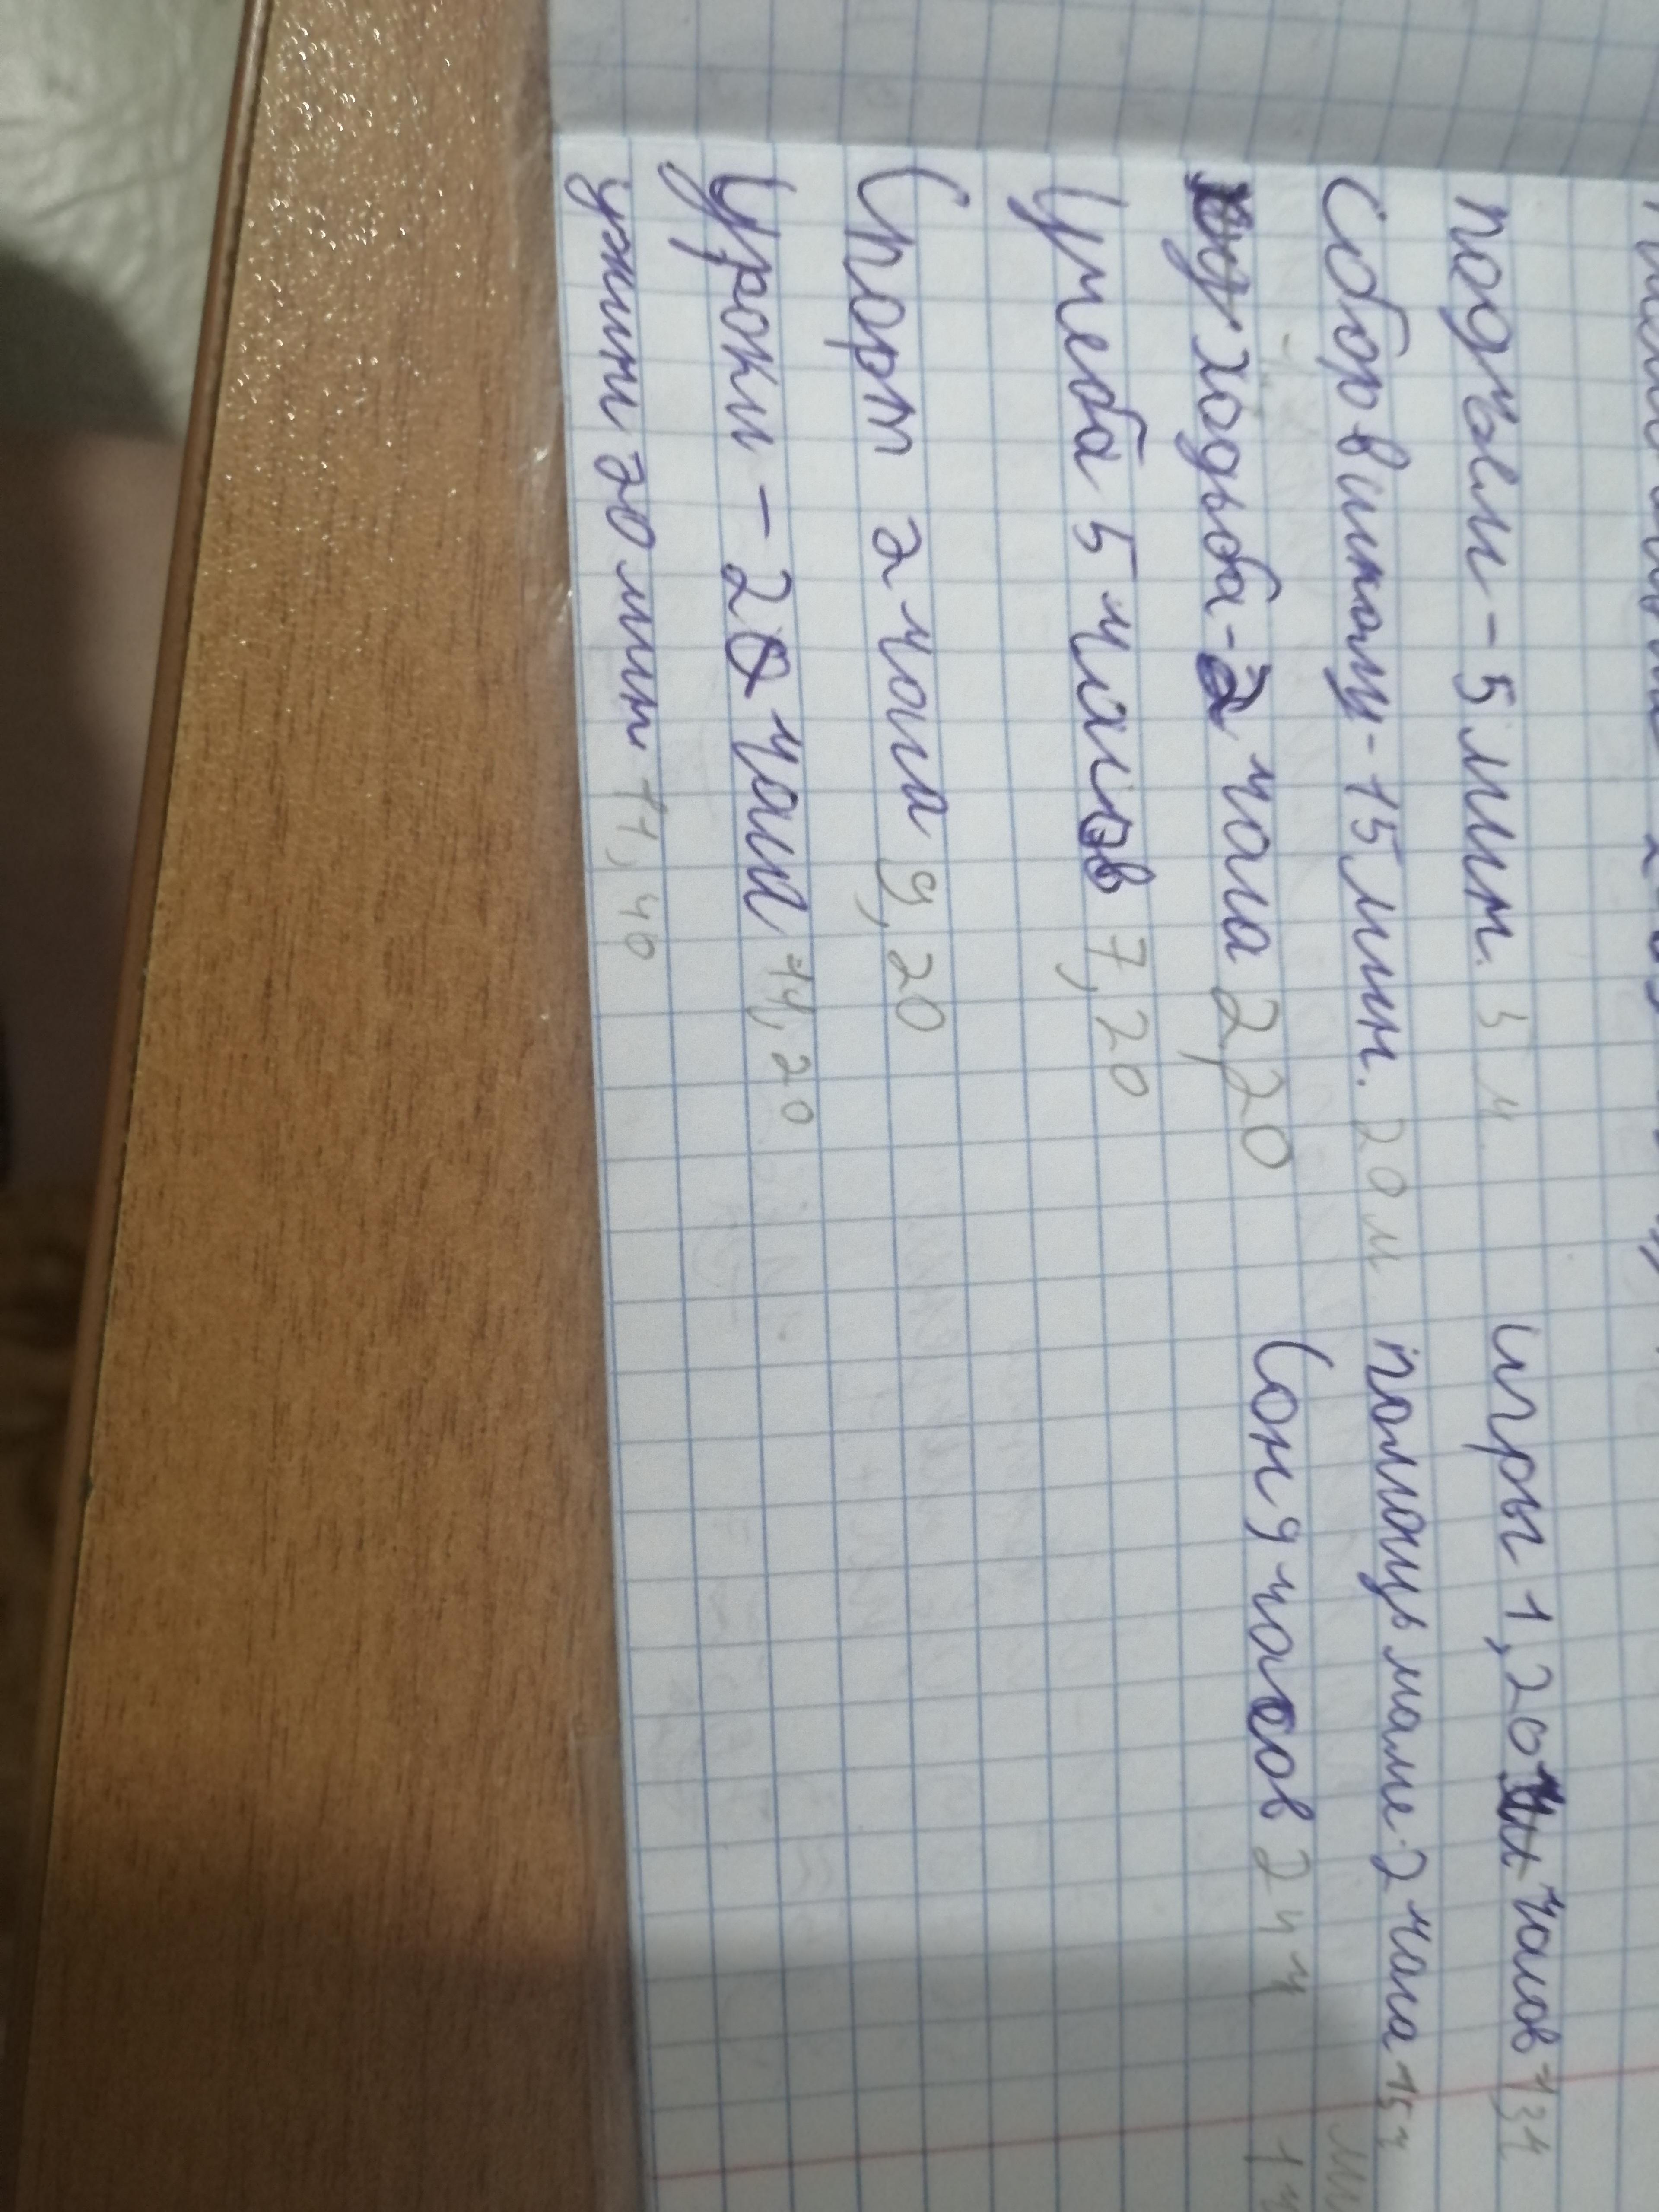 подъем - 5 мин. 5 м.
Сбор в школу - 15 мин. 20 м
ходьба - 2 часа 2,20
Учеба 5 часов 7,20
Спорт 2 часа 9,20
Уроки - 2 часа 11,20
ужин 20 мин 11,40
игры 1,20 часов 13ч
помощь маме 2 часа 15ч
Сон 9 часов 24 ч